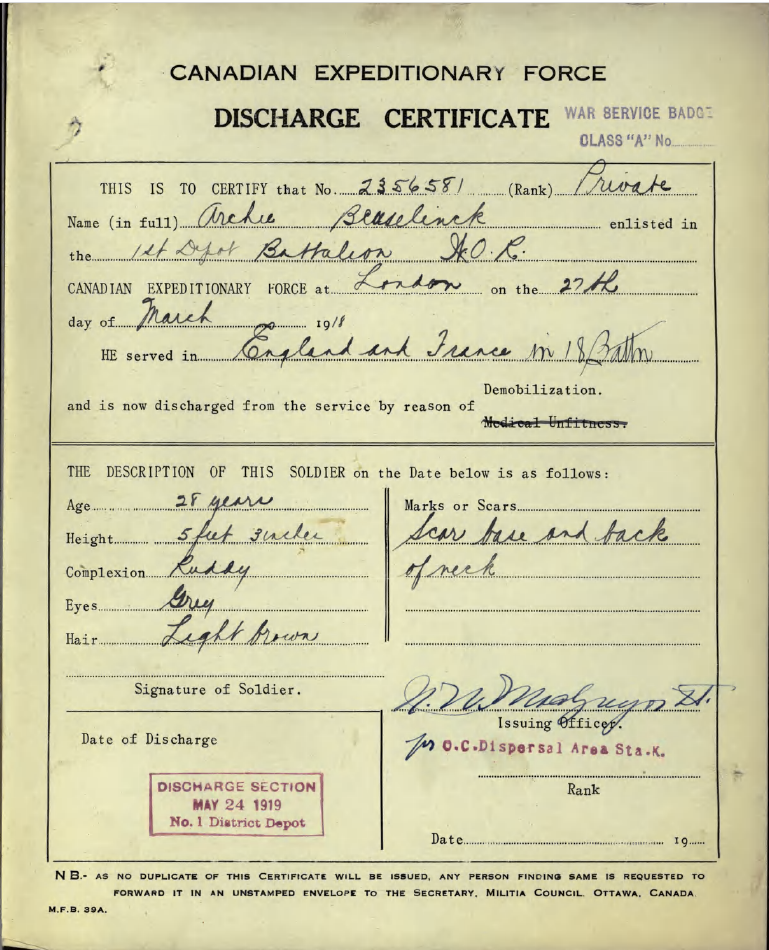 CANADIAN EXPEDITIONARY FORCE
DISCHARGE CERTIFICATE
WAR SERVICE BADGE
CLASS "A" No
THIS IS TO CERTIFY that No. 2356581 (Rank) Private
Name (in full) Archie enlisted in
the 1st Depot Battalion W.O.R.
CANADIAN EXPEDITIONARY FORCE at London on the 27th
day of March 1918
HE served in England and France in 18 Battn
and is now discharged from the service by reason of
Demobilization.
Medical Unfitness.
THE DESCRIPTION OF THIS SOLDIER on the Date below is as follows:
Age 28 years
Height 5 feet 3 inches
Complexion Ruddy
Eyes Grey
Hair Light brown
Marks or Scars
Scar base and back
of neck
Signature of Soldier.
MacGregor Lt.
Issuing Officer.
for O.C. Dispersal Area Sta. K.
Rank
Date of Discharge
DISCHARGE SECTION
MAY 24 1919
No. 1 District Depot
Date 19
NB.- AS NO DUPLICATE OF THIS CERTIFICATE WILL BE ISSUED, ANY PERSON FINDING SAME IS REQUESTED TO
FORWARD IT IN AN UNSTAMPED ENVELOPE TO THE SECRETARY, MILITIA COUNCIL, OTTAWA, CANADA.
M.F.B. 39A.